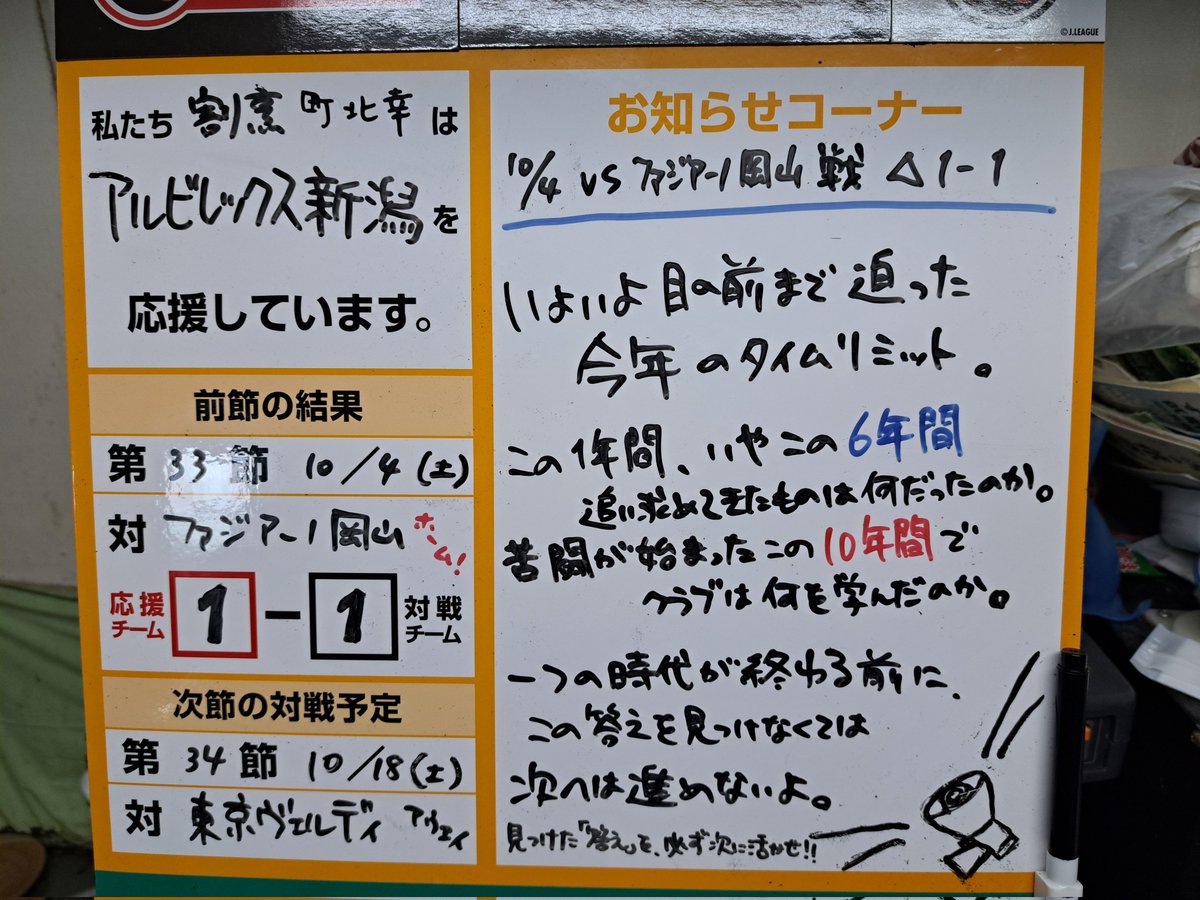 ©J.LEAGUE
私たち 割烹 町北幸 は
アルビレックス新潟を
応援しています。
前節の結果
第 33 節 10/4(土)
対 ファジアーノ岡山 ホーム!
応援チーム 1 - 1 対戦チーム
次節の対戦予定
第 34 節 10/18(土)
対 東京ヴェルディ アウェイ
お知らせコーナー
10/4 VS ファジアーノ岡山戦 △1-1
いよいよ目の前まで迫った
今年のタイムリミット。
この1年間、いやこの6年間
追い求めてきたものは何だったのか。
苦闘が始まったこの10年間で
クラブは何を学んだのか。
一つの時代が終わる前に、
この答えを見つけなくては
次へは進めないよ。
見つけた「答え」を、必ず次に活かせ!!